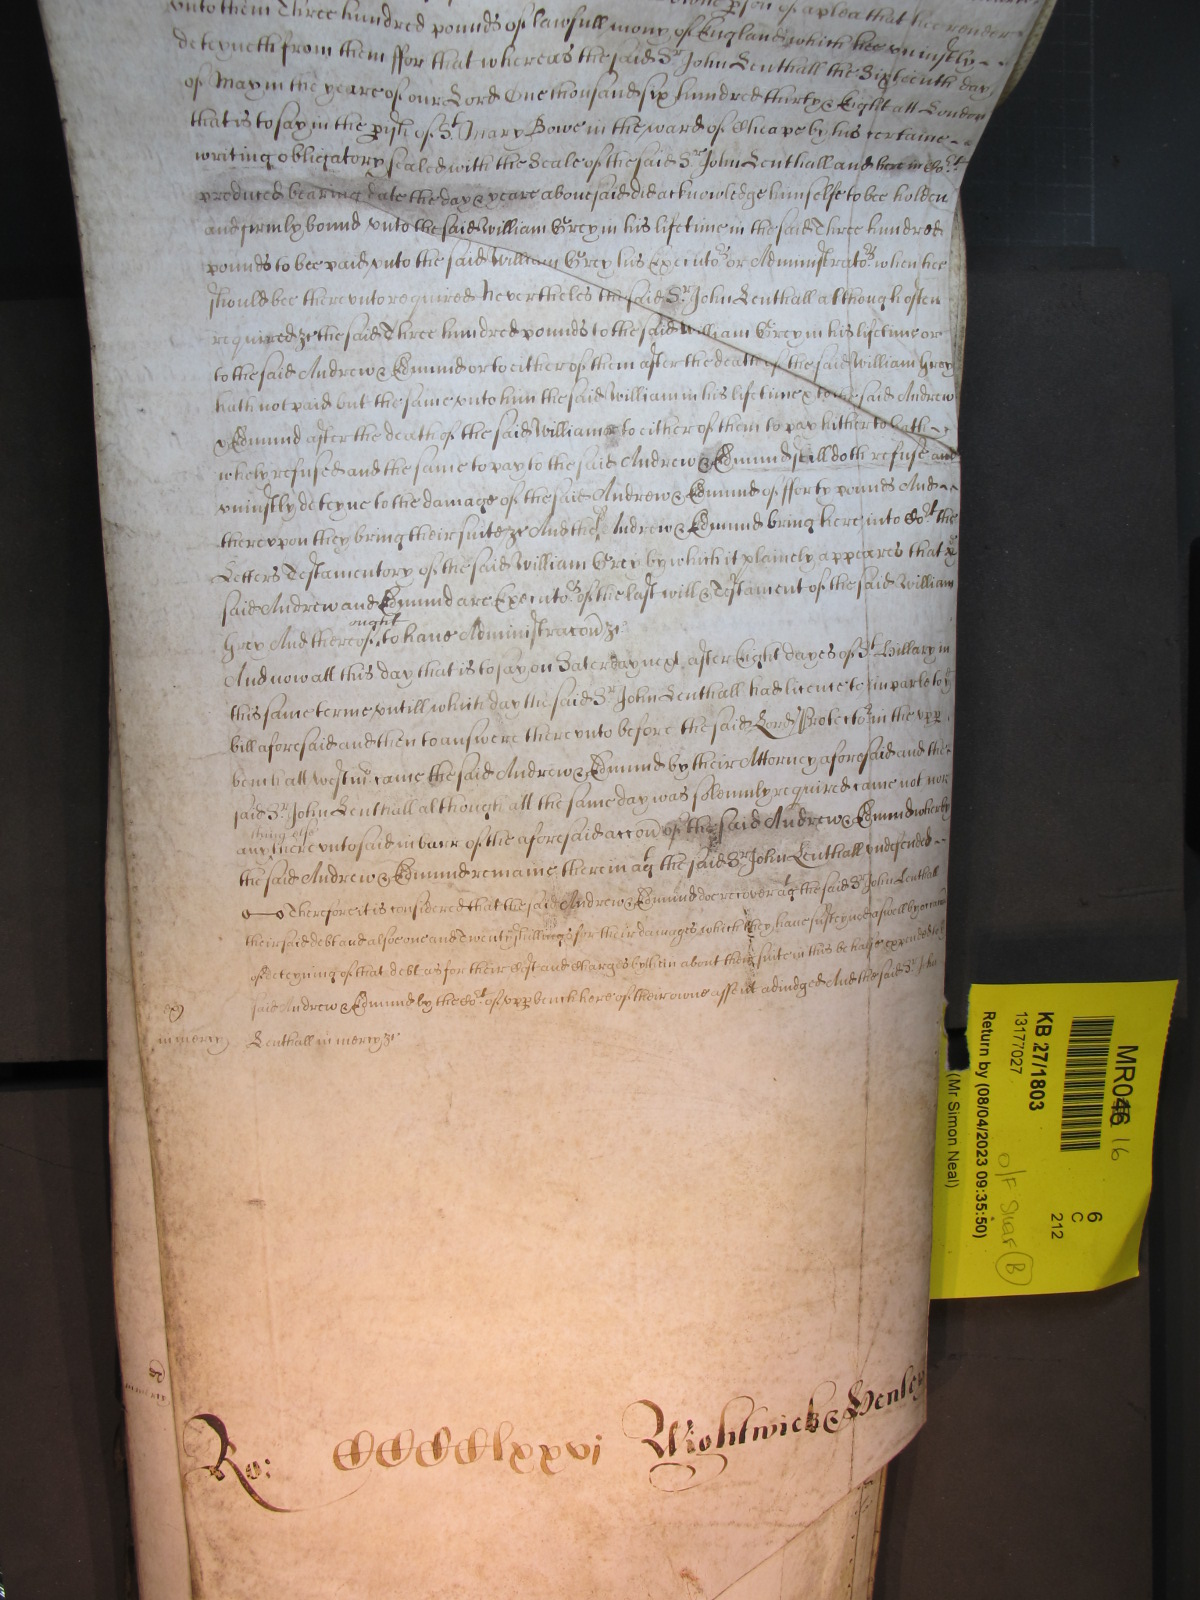 unto them Three hundred pounds of lawfull mony of England which hee uniustly
deteyneth from them ffor that whereas the said Sr John Lenthall the Sixteenth day
of May in the yeare of our Lord One thousand six hundred thirty & Eight att London
that is to say in the pish of St Mary Bowe in the ward of Cheape by his certaine
writing obligatory sealed with the Seale of the said Sr John Lenthall and here in Cort
produced bearing date the day & yeare abovesaid did acknowledge himselfe to bee holden
and firmly bound unto the said William Grey in his lifetime in the said Three hundred
pounds to bee paid unto the said William Grey his Executors or Administrators when hee
should bee thereunto required Nevertheles the said Sr John Lenthall although often
required &c the said Three hundred pounds to the said William Grey in his lifetime or
to the said Andrew & Edmund or to either of them after the death of the said William Grey
hath not paid but the same unto him the said William in his lifetime & to the said Andrew
& Edmund after the death of the said William & to either of them to pay hitherto hath
wholy refused and the same to pay to the said Andrew & Edmund still doth refuse and
uniustly deteyne to the damage of the said Andrew & Edmund of fforty pounds And
thereupon they bring their suite &c And the Andrew & Edmund bring here into Cort the
Letters Testamentory of the said William Grey by which it plainely appeares that ye
said Andrew and Edmund are Executors of the last will & Testament of the said William
Grey And thereof ought to have Administracon &c
And now att this day that is to say on Saterday next after Eight dayes of St Hillary in
this same terme untill which day the said Sr John Lenthall had licence to imparle to ye
bill aforesaid and then to answere thereunto before the said Lord Protector in the upp
bench att Westmr came the said Andrew & Edmund by their Attorney aforesaid and the
said Sr John Lenthall although att the same day was solemnly required came not nor
any thing else thereunto said in barr of the aforesaid accon of the said Andrew & Edmund whereby
the said Andrew & Edmund remaine therein agt the said Sr John Lenthall undefended
Therefore it is considered that the said Andrew & Edmund doe recover agt the said Sr John Lenthall
their said debt and alsoe one and twenty shillings for their damages which they have susteyned aswell by occasion
of deteyning of that debt as for their Cost and Charges by them about their suite in this behalfe expended to ye
said Andrew & Edmund by the Cort of upp bench here of their owne assent adiudged And the said Sr John
in mercy
Lenthall in mercy &c
Ro: CCCClxxvj Wightwick & Henley
MR046 16
KB 27/1803
13177027
Return by (08/04/2023 09:35:50)
(Mr Simon Neal)
6
C
212
B